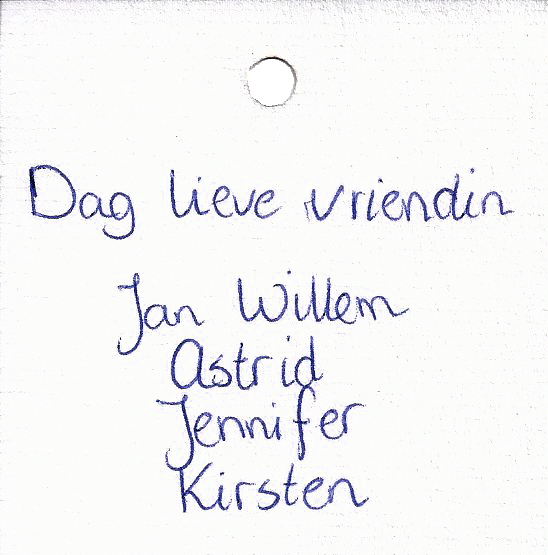 Dag lieve vriendin
Jan Willem
Astrid
Jennifer
Kirsten